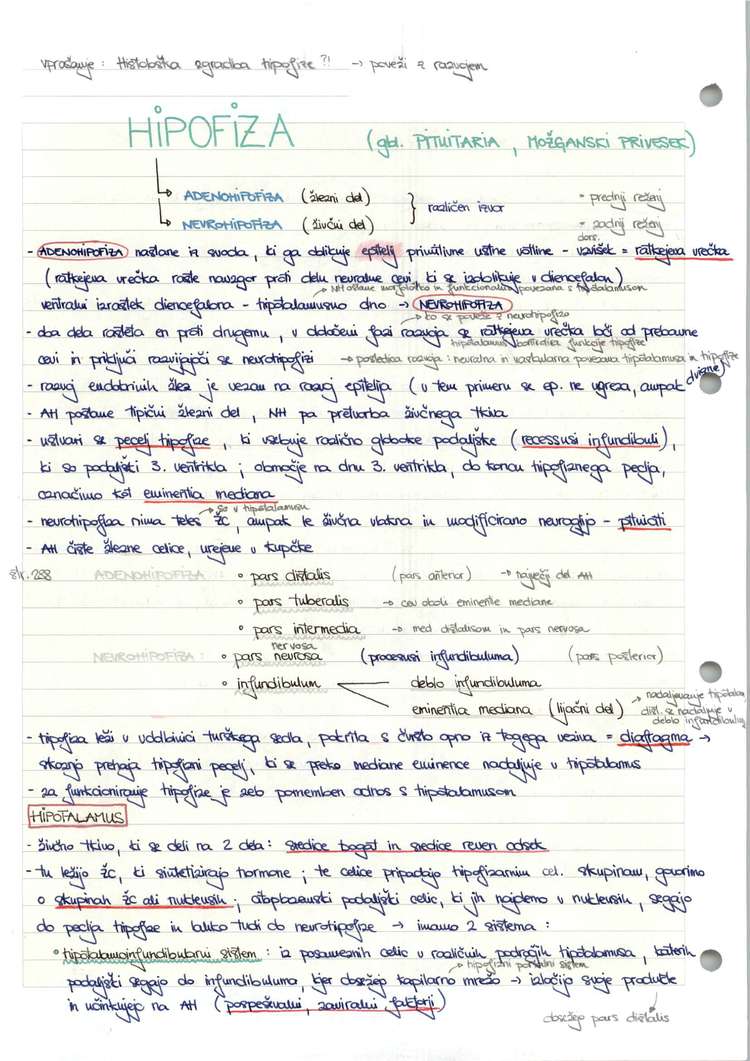 vprašanje : Histološka zgradba hipofize ?! → poveži z razvojem
HIPOFIZA (gl. PITUITARIA, MOŽGANSKI PRIVESEK)
ADENOHIPOFIZA (žlezni del) - prednji reženj
} različen izvor
NEVROHIPOFIZA (živčni del) - zadnji reženj
dorz.
- ADENOHIPOFIZA nastane iz svoda, ki ga oblikuje epitelij primitivne ustne votline - vzvišek = ratkejeva vrečka
(ratkejeva vrečka raste navzgor proti delu nevralne cevi, ki se izoblikuje v diencefalon)
→ NH ostane morfološko in funkcionalno povezana s hipotalamusom
ventralni izrastek diencefalona - hipotalamusno dno → NEVROHIPOFIZA
→ ko se poveže z neurohipofizo
- oba dela rasteta en proti drugemu, v določeni fazi razvoja se ratkejeva vrečka loči od prebavne
hipotalamus kontrolira funkcije hipofize
cevi in priključi razvijajoči se neurohipofizi → posledica razvoja : nevralna in vaskularna povezava hipotalamusa in hipofize
- razvoj endokrinih žlez je vezan na razvoj epitelija (v tem primeru se ep. ne ugreza, ampak dvigne)
- AH postane tipični žlezni del, NH pa pretvorba živčnega tkiva
- ustvari se pecelj hipofize, ki vsebuje različno globoke podaljške (recessusi infundibuli),
ki so podaljški 3. ventrikla ; območje na dnu 3. ventrikla, do koncu hipofiznega peclja,
označimo kot eminentia mediana
→ so v hipotalamusu
- neurohipofiza nima teles ŽC, ampak le živčna vlakna in modificirano nevroglijo - pituiciti
- AH čiste žlezne celice, urejene v kupčke
str. 288 ADENOHIPOFIZA : ° pars distalis (pars anterior) → največji del AH
° pars tuberalis → cev okoli eminentie mediane
° pars intermedia → med distalisom in pars nervosa
nervosa
NEVROHIPOFIZA : ° pars neurosa (procesusi infundibuluma) (pars posterior)
° infundibulum deblo infundibuluma
eminentia mediana (lijačni del) → nadaljevanje hipotalam.
dist. se nadaljuje v
deblo infundibuluma
- hipofiza leži v vdolbinici turškega sedla, pokrita s čvrsto opno iz togega veziva = diafragma →
skoznjo prehaja hipofizni pecelj, ki se preko mediane eminence nadaljuje v hipotalamus
- za funkcioniranje hipofize je zelo pomemben odnos s hipotalamusom
HIPOTALAMUS
- živčno tkivo, ki se deli na 2 dela : sredice bogat in sredice reven odsek
- tu ležijo ŽC, ki sintetizirajo hormone ; te celice pripadajo hipofizarnim cel. skupinam, govorimo
o skupinah ŽC ali nukleusih, citoplazemski podaljški celic, ki jih najdemo v nukleusih, segajo
do peclja hipofize in lahko tudi do neurohipofize → imamo 2 sistema :
° hipotalamoinfundibularni sistem : iz posameznih celic v različnih področjih hipotalamusa, katerih
→ hipofizni portalni sistem
podaljški segajo do infundibuluma, kjer dosežejo kapilarno mrežo → izločijo svoje produkte
in učinkujejo na AH (pospeševalni, zaviralni faktorji)
dosežejo pars distalis